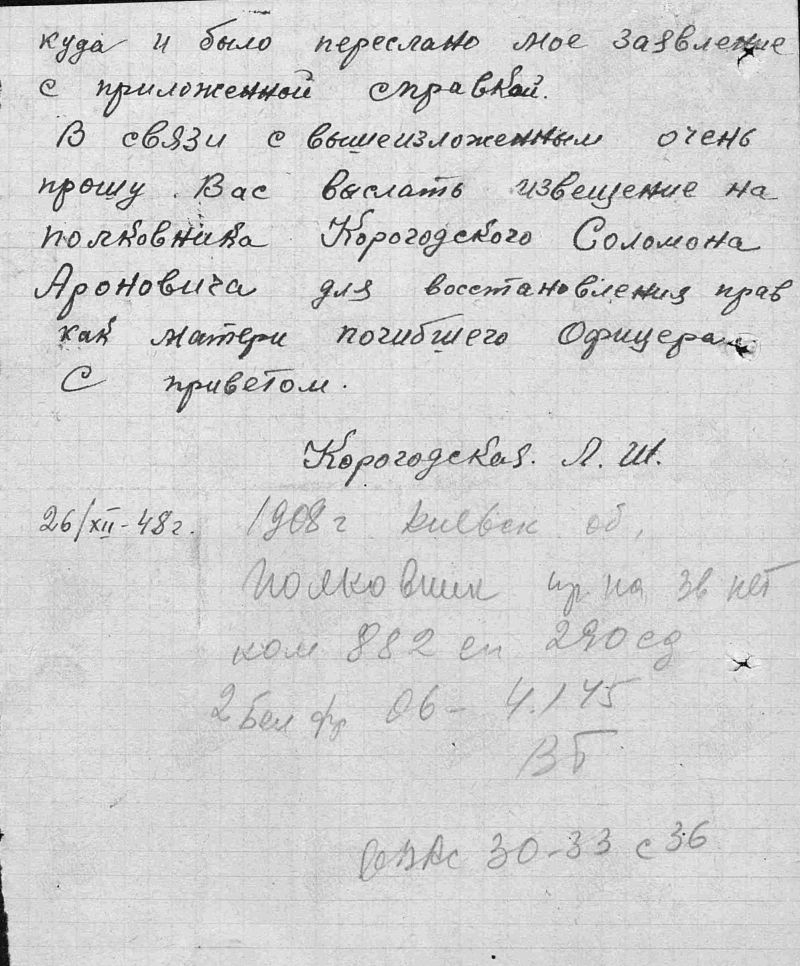 куда и было переслано мое заявление
с приложенной справкой.
В связи с вышеизложенным очень
прошу Вас выслать извещение на
полковника Корогодского Соломона
Ароновича для восстановления прав
как матери погибшего Офицера.
С приветом.
Корогодская. Л. Ш.
26/XII-48 г.
1908 г Киевск об,
полковник пр. на зв нет
ком 882 сп 290 сд
2 Бел фр Об- 4.1.45
ВБ
30-33 с 36